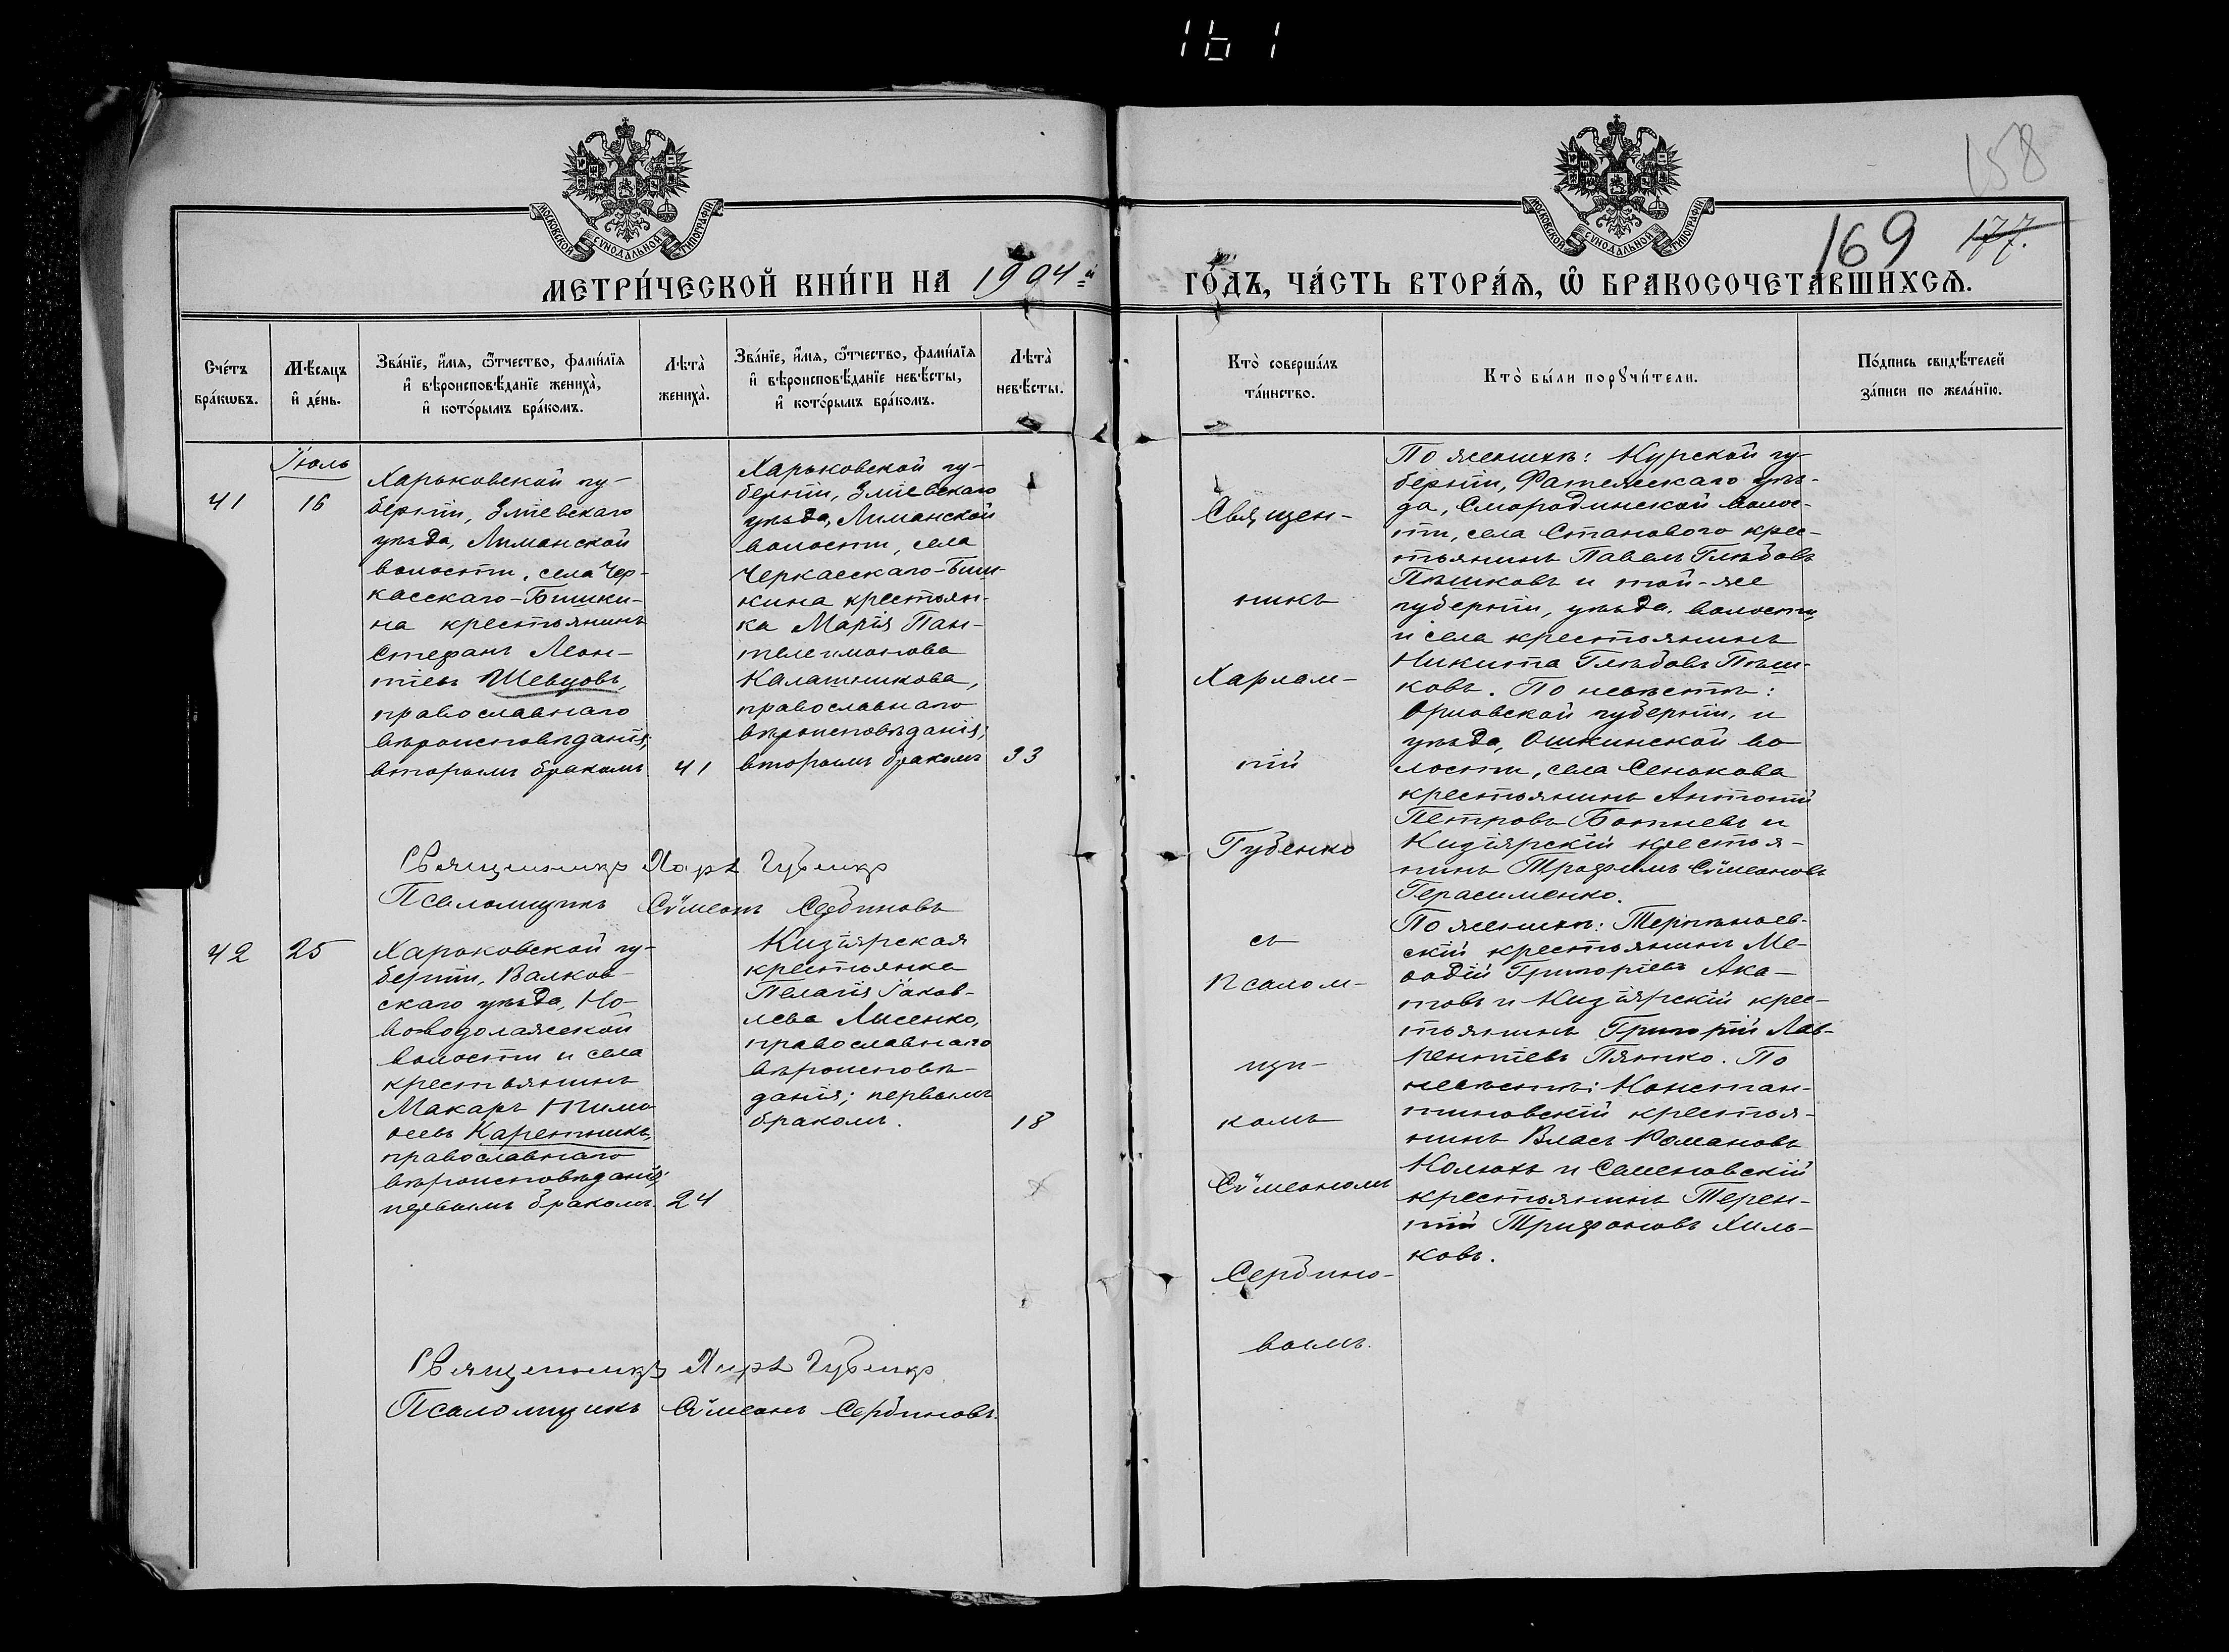 161
158
169
177.
МОСКОВСКОЙ СѴНОДАЛЬНОЙ ТИПОГРАФІИ
МОСКОВСКОЙ СѴНОДАЛЬНОЙ ТИПОГРАФІИ
МЕТРИ́ЧЕСКОЙ КНИ́ГИ НА 1904й ГО́ДЪ, ЧА́СТЬ ВТОРА́Ѧ, Ѡ҆ БРАКОСОЧЕТА́ВШИХСѦ.
Сче́тъ
бра́кѡвъ.
Мѣ́сяцъ
и҆ де́нь.
Зва́нїе, и҆́мя, ѻ҆́тчество, фами́лїя
и҆ вѣроисповѣ́данїе жениха̀,
и҆ кото́рымъ бра́комъ.
Лѣ́та̀
жениха̀.
Зва́нїе, и҆́мя, ѻ҆́тчество, фами́лїя
и҆ вѣроисповѣ́данїе невѣ́сты,
и҆ кото́рымъ бра́комъ.
Лѣ́та̀
невѣ́сты.
Кто̀ соверша́лъ
та́инство.
Кто̀ бы́ли порꙋчи́тели.
По́дпись свидѣ́телей
за́писи по жела́нїю.
Іюль
41
16
Харьковской гу-
берніи, Зміевскаго
уѣзда, Лиманской
волости, села Чер-
касскаго-Бишки-
на крестьянинъ
Стефанъ Леон-
тіевъ Шевцовъ,
православнаго
вѣроисповѣданія;
вторымъ бракомъ
41
Харьковской гу-
берніи, Зміевскаго
уѣзда, Лиманской
волости, села
Черкасскаго-Биш-
кина крестьян-
ка Марія Пан-
телеимонова
Калашникова,
православнаго
вѣроисповѣданія;
вторымъ бракомъ
33
Священ-
никъ
Харлам-
пій
Губенко
съ
псалом-
щи-
комъ
Сѵмеономъ
Сербино-
вымъ.
По женихѣ: Курской гу-
берніи, Фатежскаго уѣз-
да, Смородинской волос-
ти, села Становаго крес-
тьянинъ Павелъ Глѣбовъ
Пѣшковъ и той-же
губерніи, уѣзда, волости
и села крестьянинъ
Никита Глѣбовъ Пѣш-
ковъ. По невѣстѣ:
Орловской губерніи, и
уѣзда, Ошкинской во
лости, села Сенькова
крестьянинъ Антоній
Петровъ Ботневъ и
Кизіярскій крестья-
нинъ Трофимъ Сѵмеоновъ
Герасименко.
Священникъ Хар Губенко
Псаломщикъ Сѵмеонъ Сербиновъ
42
25
Харьковской гу-
берніи, Валков-
скаго уѣзда, Но-
воводолажской
волости и села
крестьянинъ
Макаръ Тимо
ѳеевъ Каретникъ,
православнаго
вѣроисповѣданія;
первымъ бракомъ.
24
Кизіярская
крестьянка
Пелагія Іаков-
лева Лысенко,
православнаго
вѣроисповѣ-
данія; первымъ
бракомъ.
18
По женихѣ: Терпѣньев-
скій крестьянинъ Ме-
ѳодій Григоріевъ Ака-
товъ и Кизіярскій крес-
тьянинъ Григорій Лав-
рентіевъ Пятко. По
невѣстѣ: Констан-
тиновскій крестья-
нинъ Власъ Романовъ
Колюхъ и Семеновскій
крестьянинъ Терен-
тій Трифоновъ Хиль-
ковъ.
Священникъ Харл Губенко
Псаломщикъ Сѵмеонъ Сербиновъ.